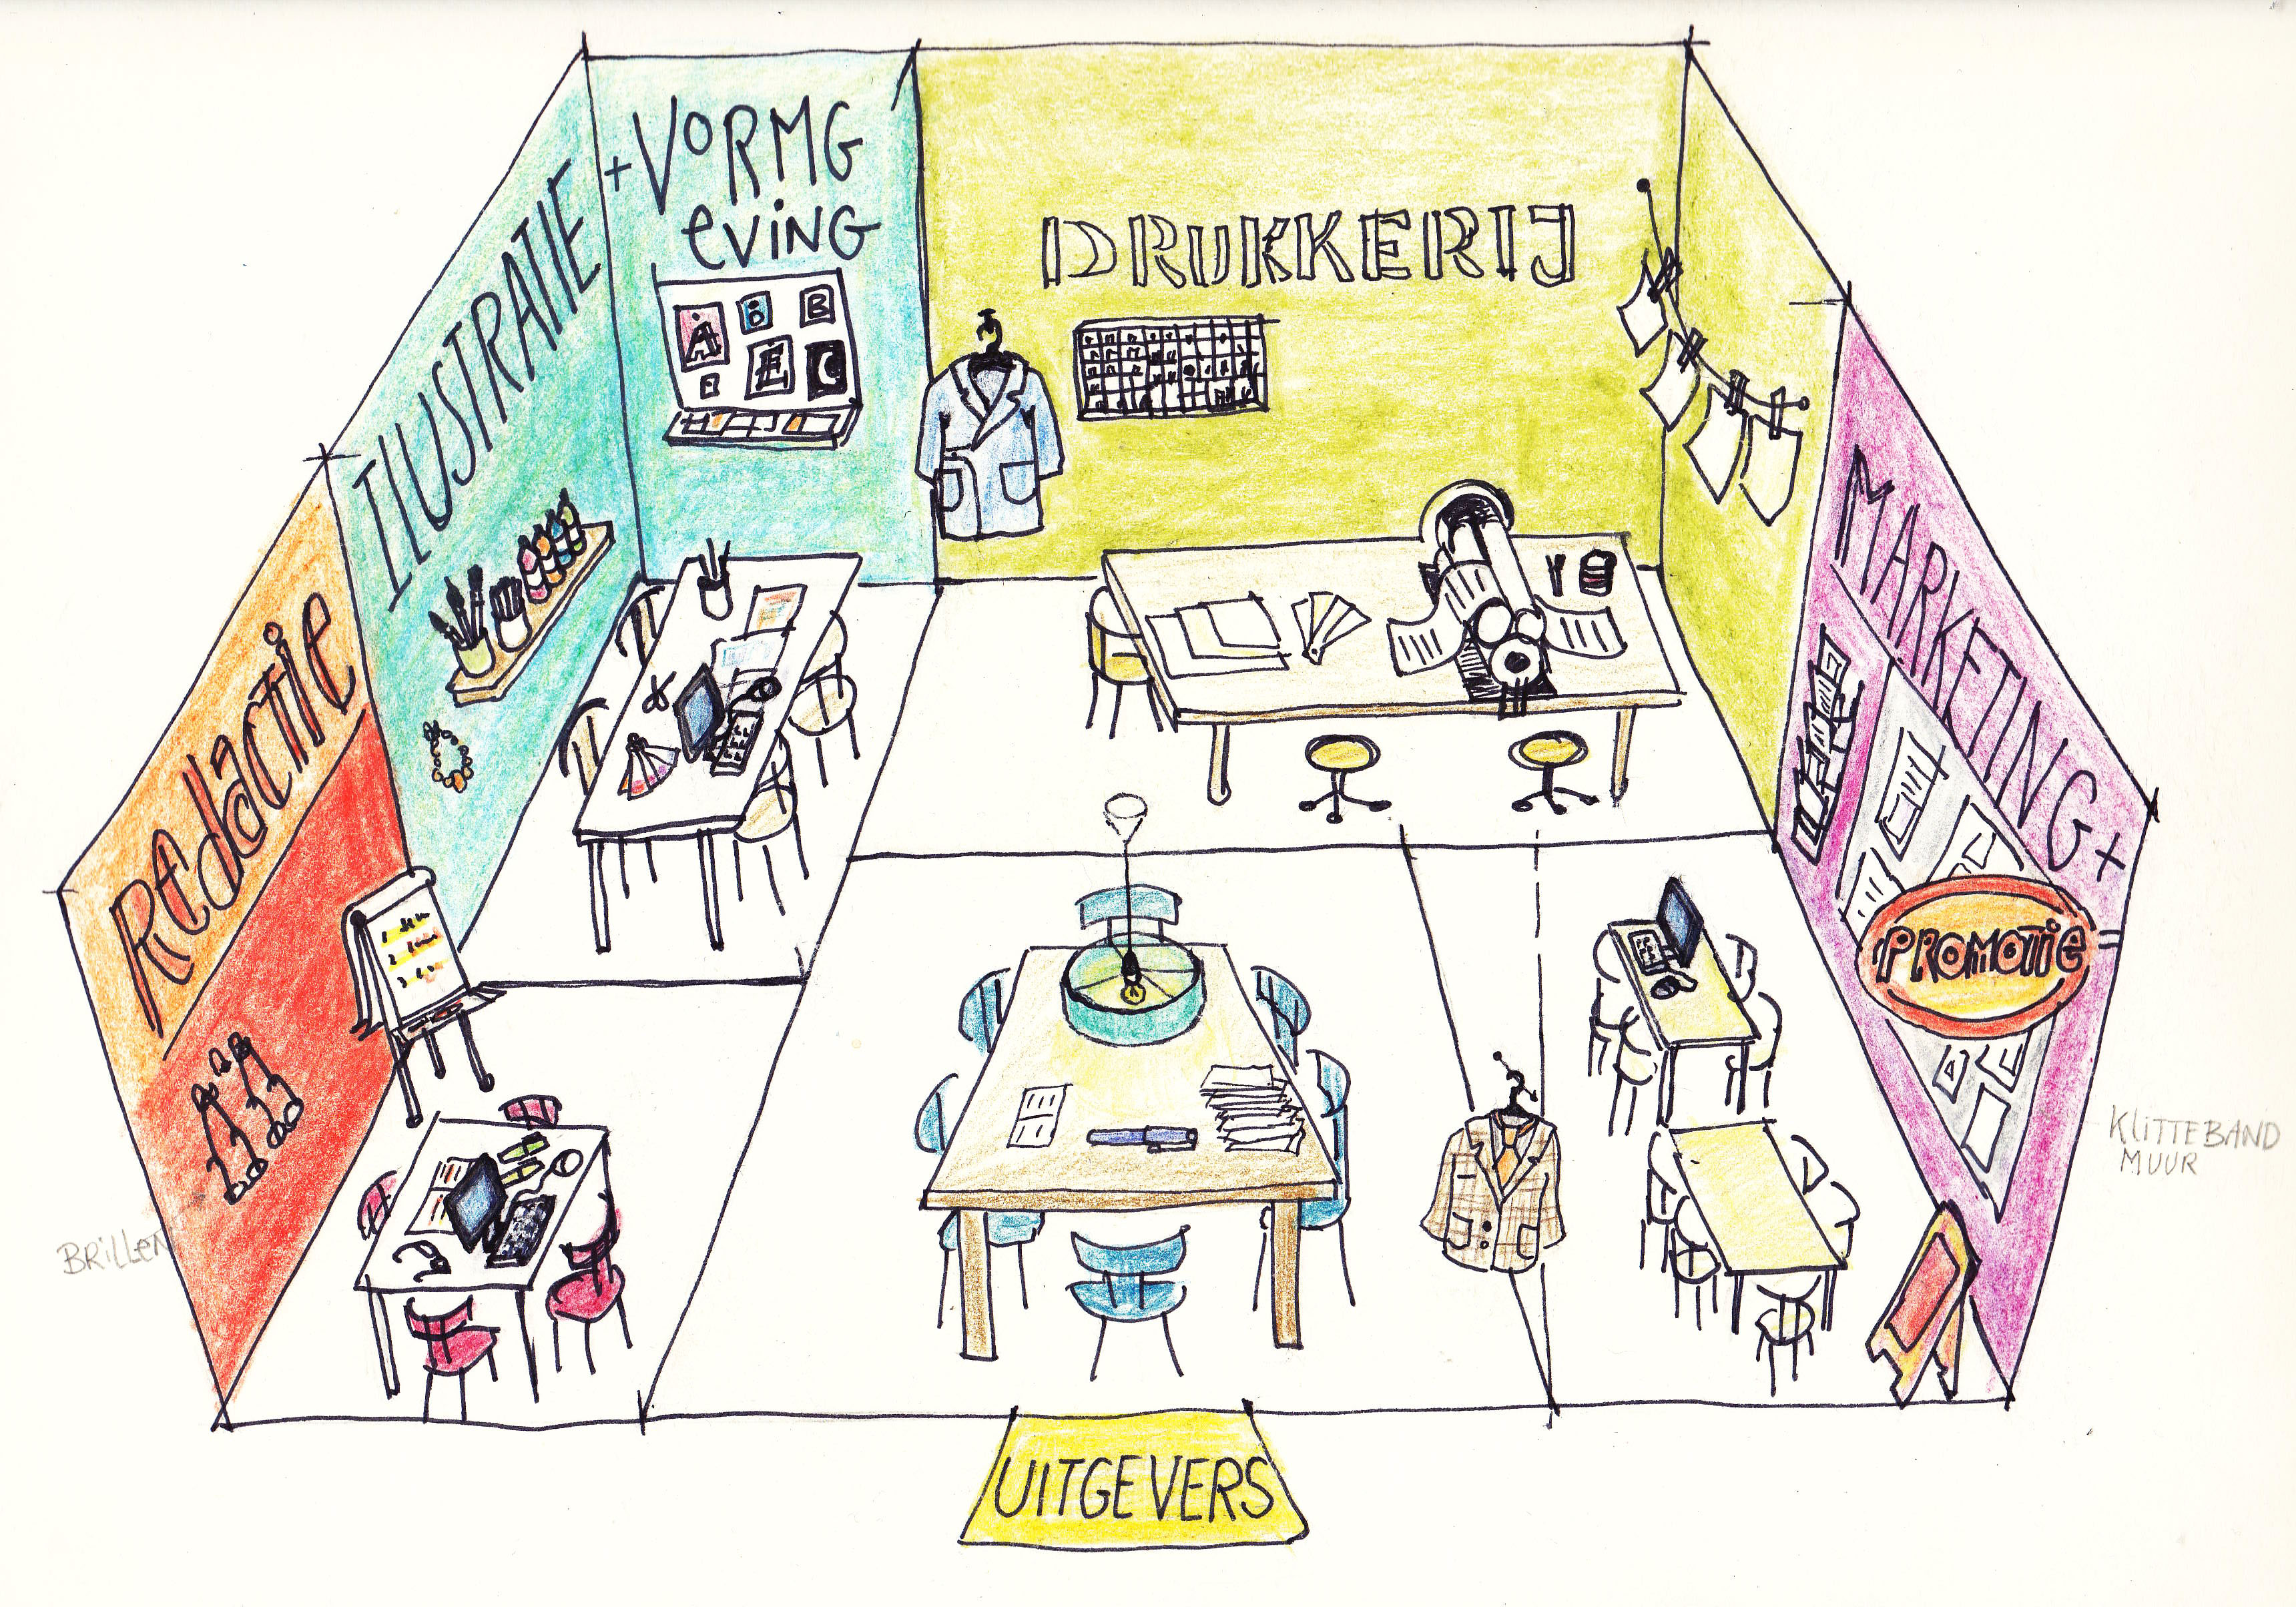 + VORMG
eViNG
DRUKKERIJ
ILUSTRATIE
Redactie
MARKETING +
PROMOTiE
A
B
E
C
KLITTEBAND
MUUR
BRILLEN
UITGEVERS